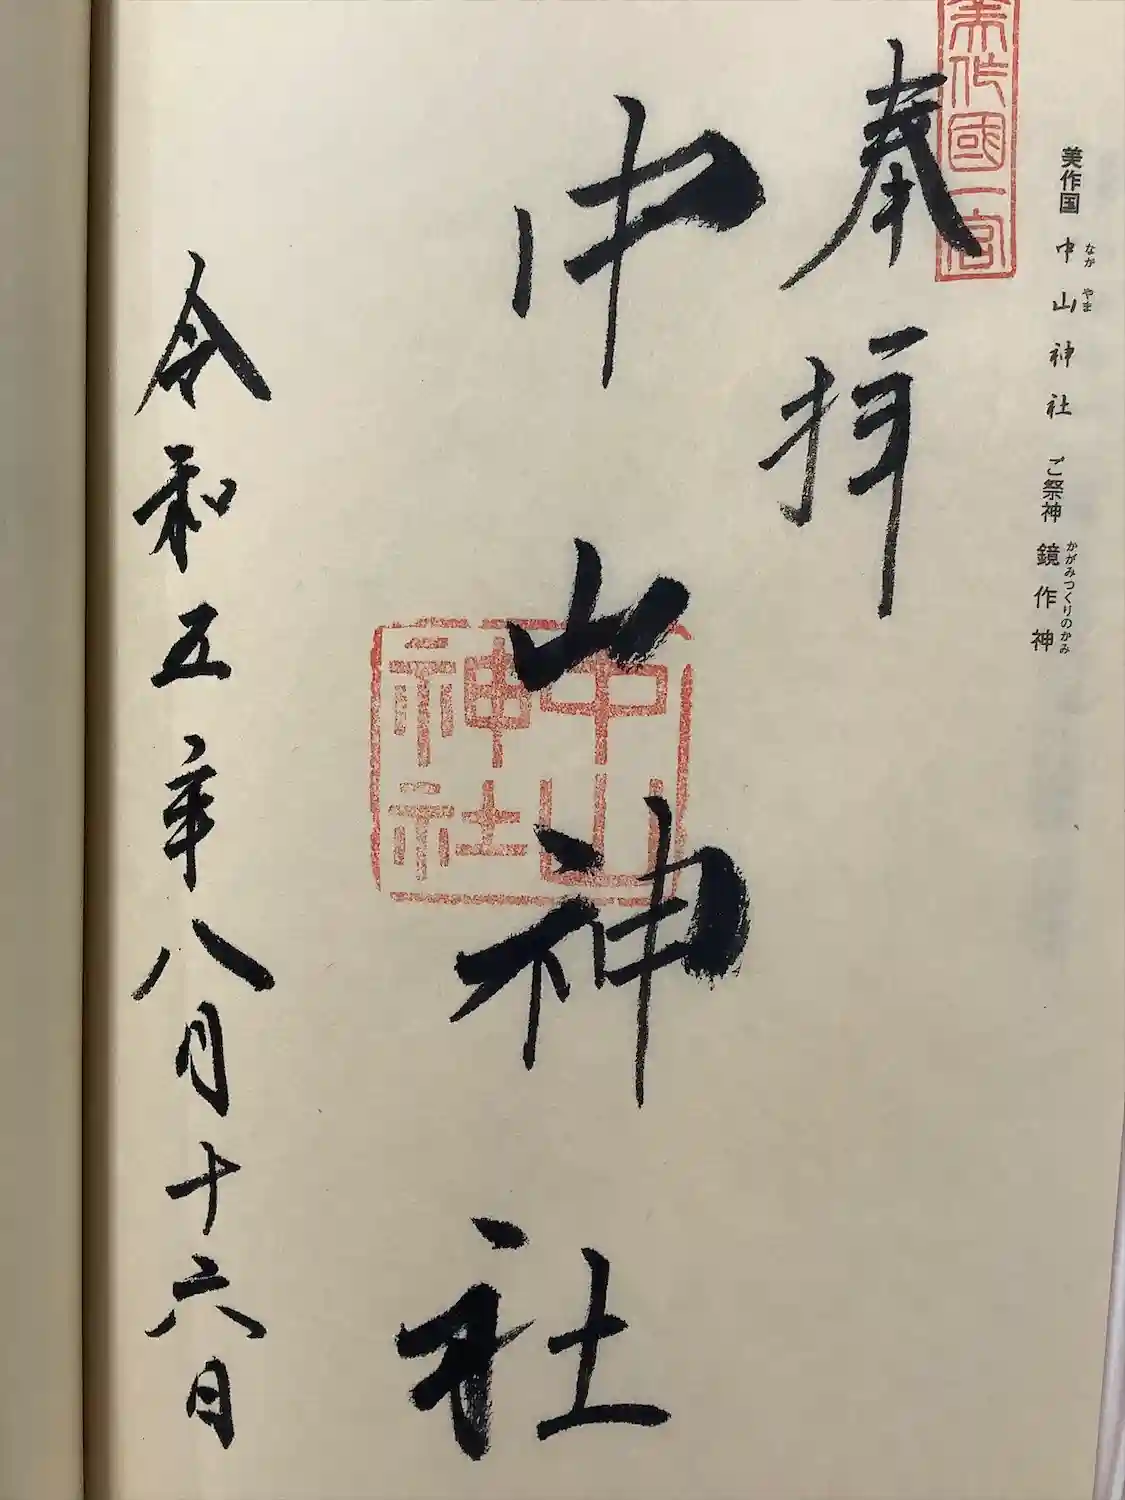 美作国 中山神社 ご祭神 鏡作神
なか やま かがみつくりのかみ
美作國一宮
奉拝
中山神社
中山神社
令和五年八月十六日